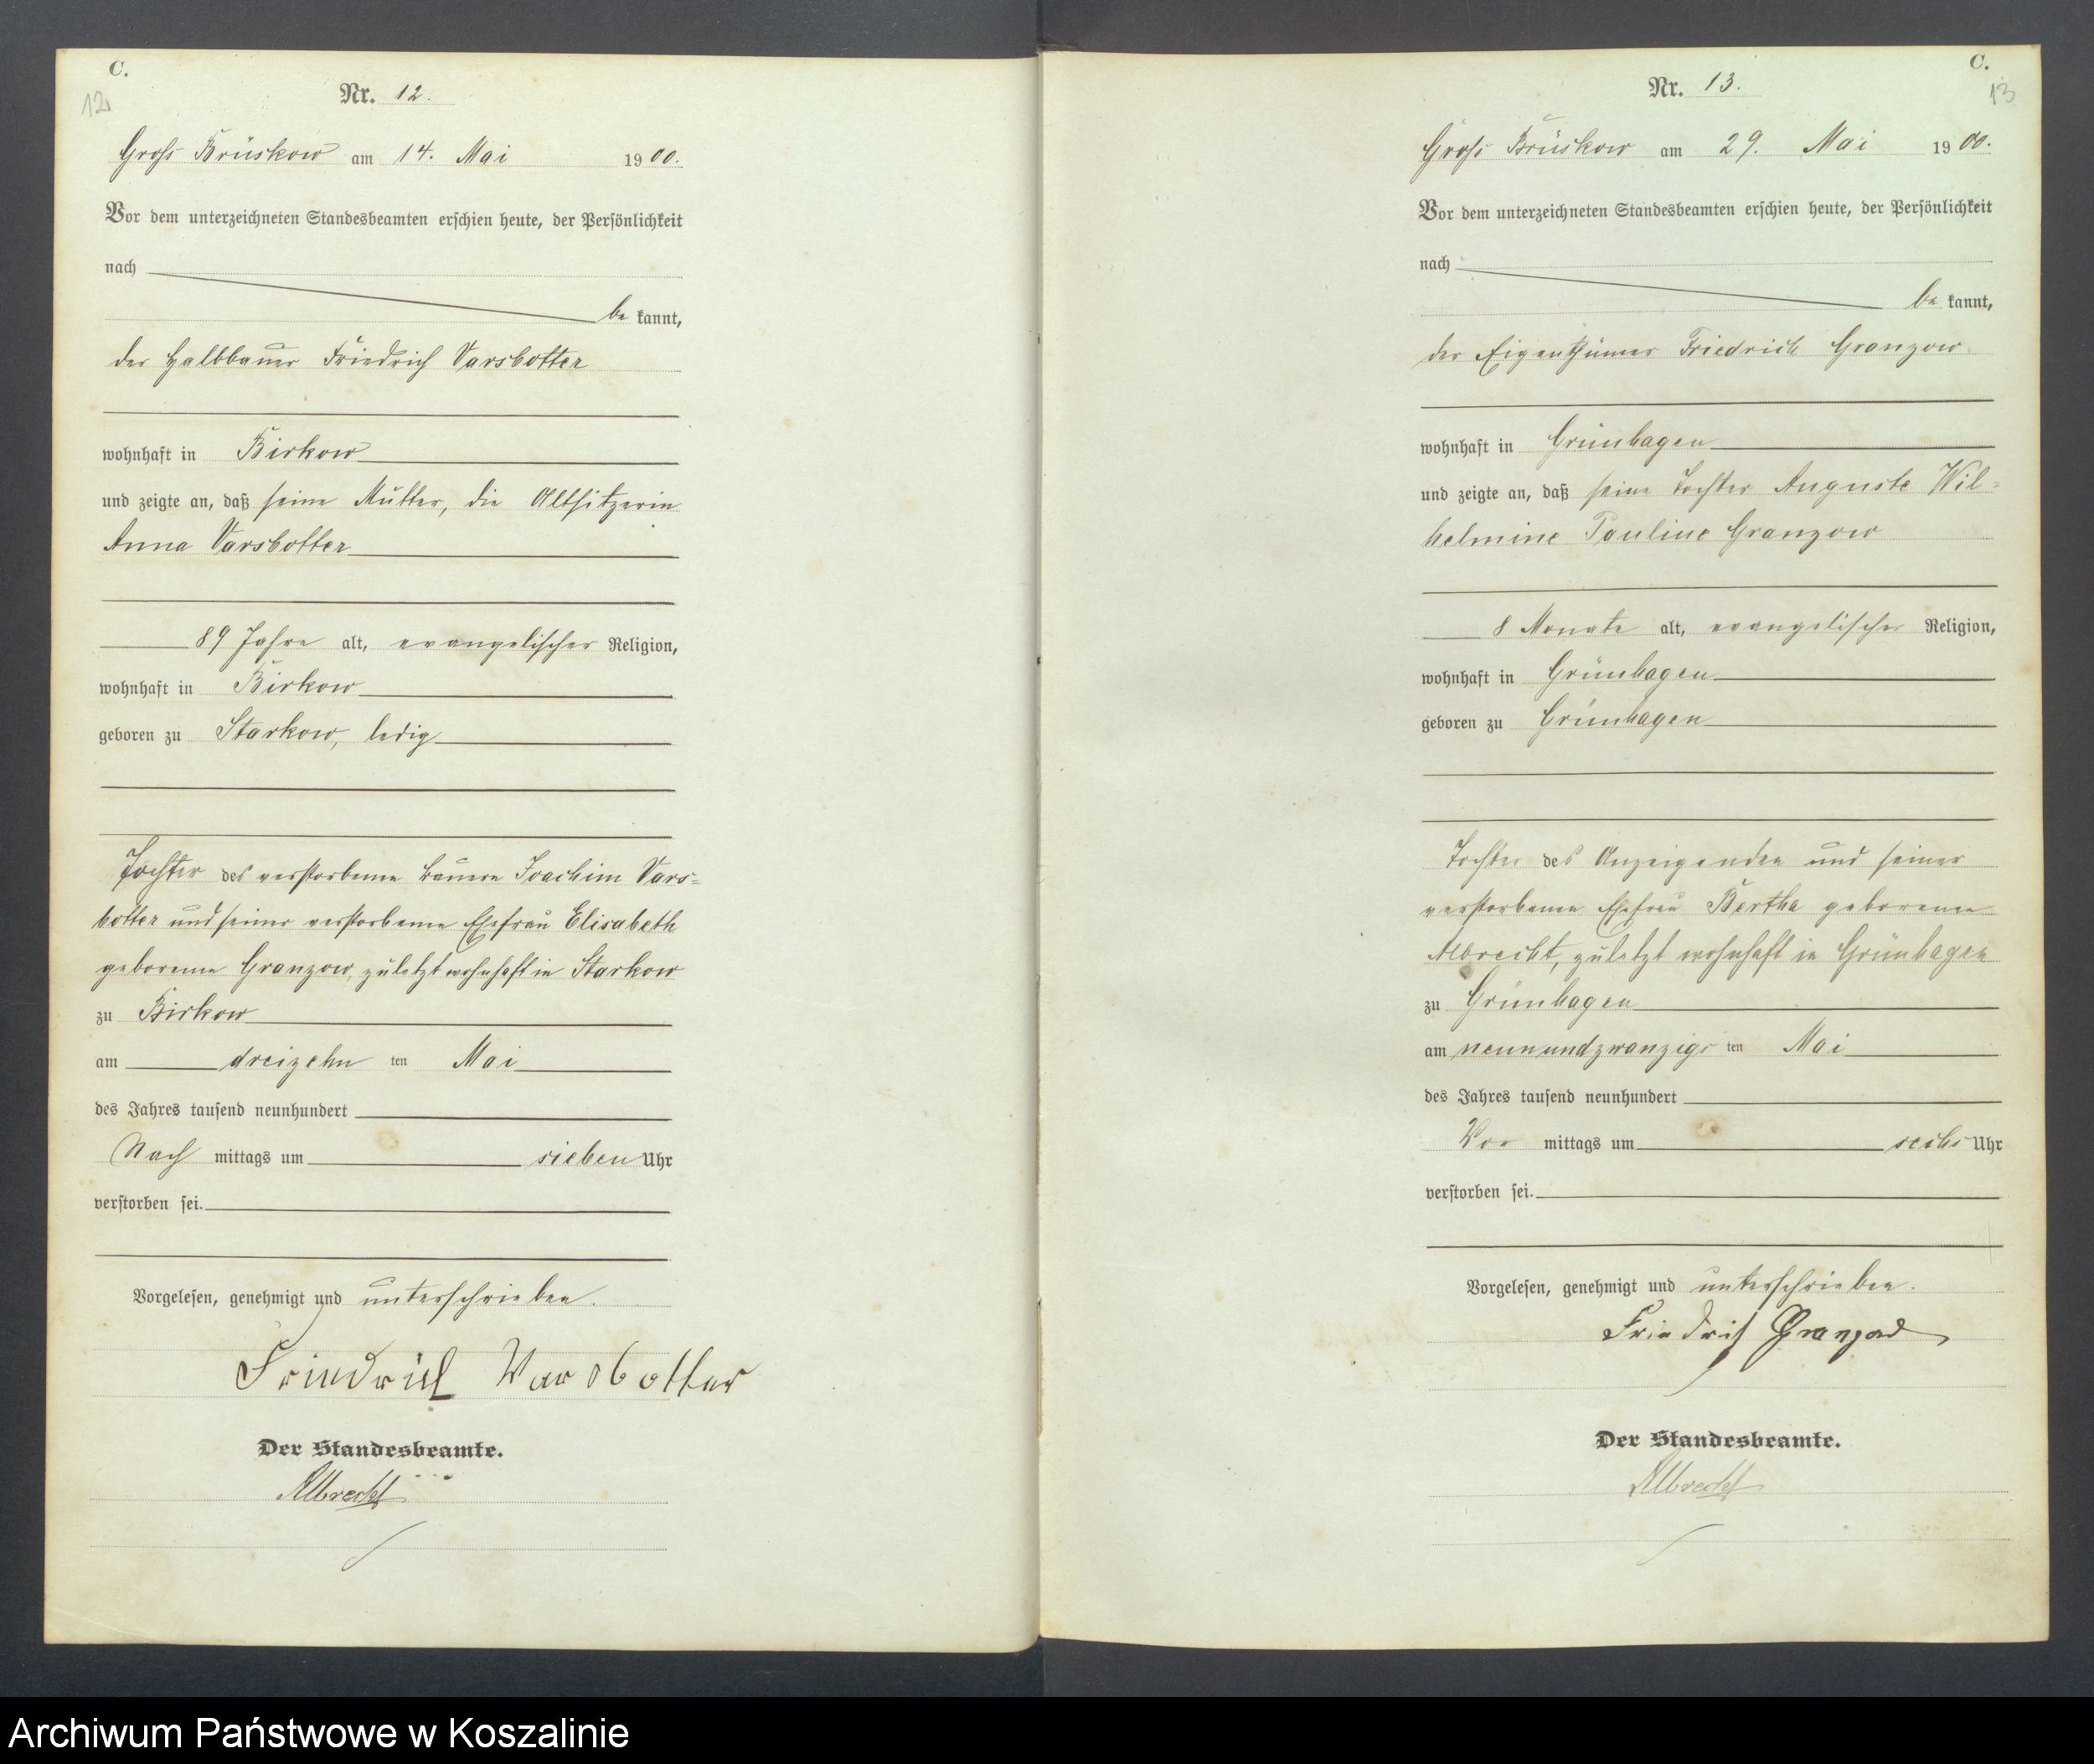 C.
12
Nr. 12.
Gross Brüskow am 14. Mai 1900.
Vor dem unterzeichneten Standesbeamten erschien heute, der Persönlichkeit
nach
be kannt,
der Halbbauer Friedrich Varsbotter
wohnhaft in Birkow
und zeigte an, daß seine Mutter, die Altsitzerin
Anna Varsbotter
89 Jahre alt, evangelischer Religion,
wohnhaft in Birkow
geboren zu Starkow, ledig
Tochter des verstorbenen Bauern Joachim Vars=
botter und seiner verstorbenen Ehefrau Elisabeth
geborenen Granzow, zuletzt wohnhaft in Starkow
zu Birkow
am dreizehn ten Mai
des Jahres tausend neunhundert
Nach mittags um sieben Uhr
verstorben sei.
Vorgelesen, genehmigt und unterschrieben.
Friedrich Varsbotter
Der Standesbeamte.
Albrecht
C.
13
Nr. 13.
Gross Brüskow am 29. Mai 1900.
Vor dem unterzeichneten Standesbeamten erschien heute, der Persönlichkeit
nach
be kannt,
der Eigenthümer Friedrich Granzow
wohnhaft in Grünhagen
und zeigte an, daß seine Tochter Auguste Wil=
helmine Pauline Granzow
8 Monate alt, evangelischer Religion,
wohnhaft in Grünhagen
geboren zu Grünhagen
Tochter des Anzeigenden und seiner
verstorbenen Ehefrau Bertha geborenen
Albrecht, zuletzt wohnhaft in Grünhagen
zu Grünhagen
am neunundzwanzigs ten Mai
des Jahres tausend neunhundert
Vor mittags um sechs Uhr
verstorben sei.
Vorgelesen, genehmigt und unterschrieben.
Friedrich Granzow
Der Standesbeamte.
Albrecht
Archiwum Państwowe w Koszalinie